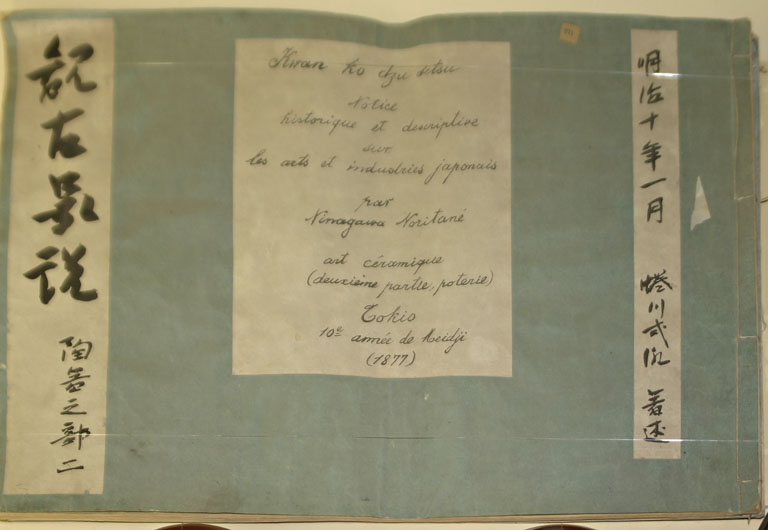 觀古圖説
陶器之部二
Kwan ko dzu setsu
Notice
historique et descriptive
sur
les arts et industries japonais
par
Ninagawa Noritané
art céramique
(deuxième partie, poterie)
Tokio
10e année de Meidji
(1877)
明治十年一月 蜷川式胤 著述